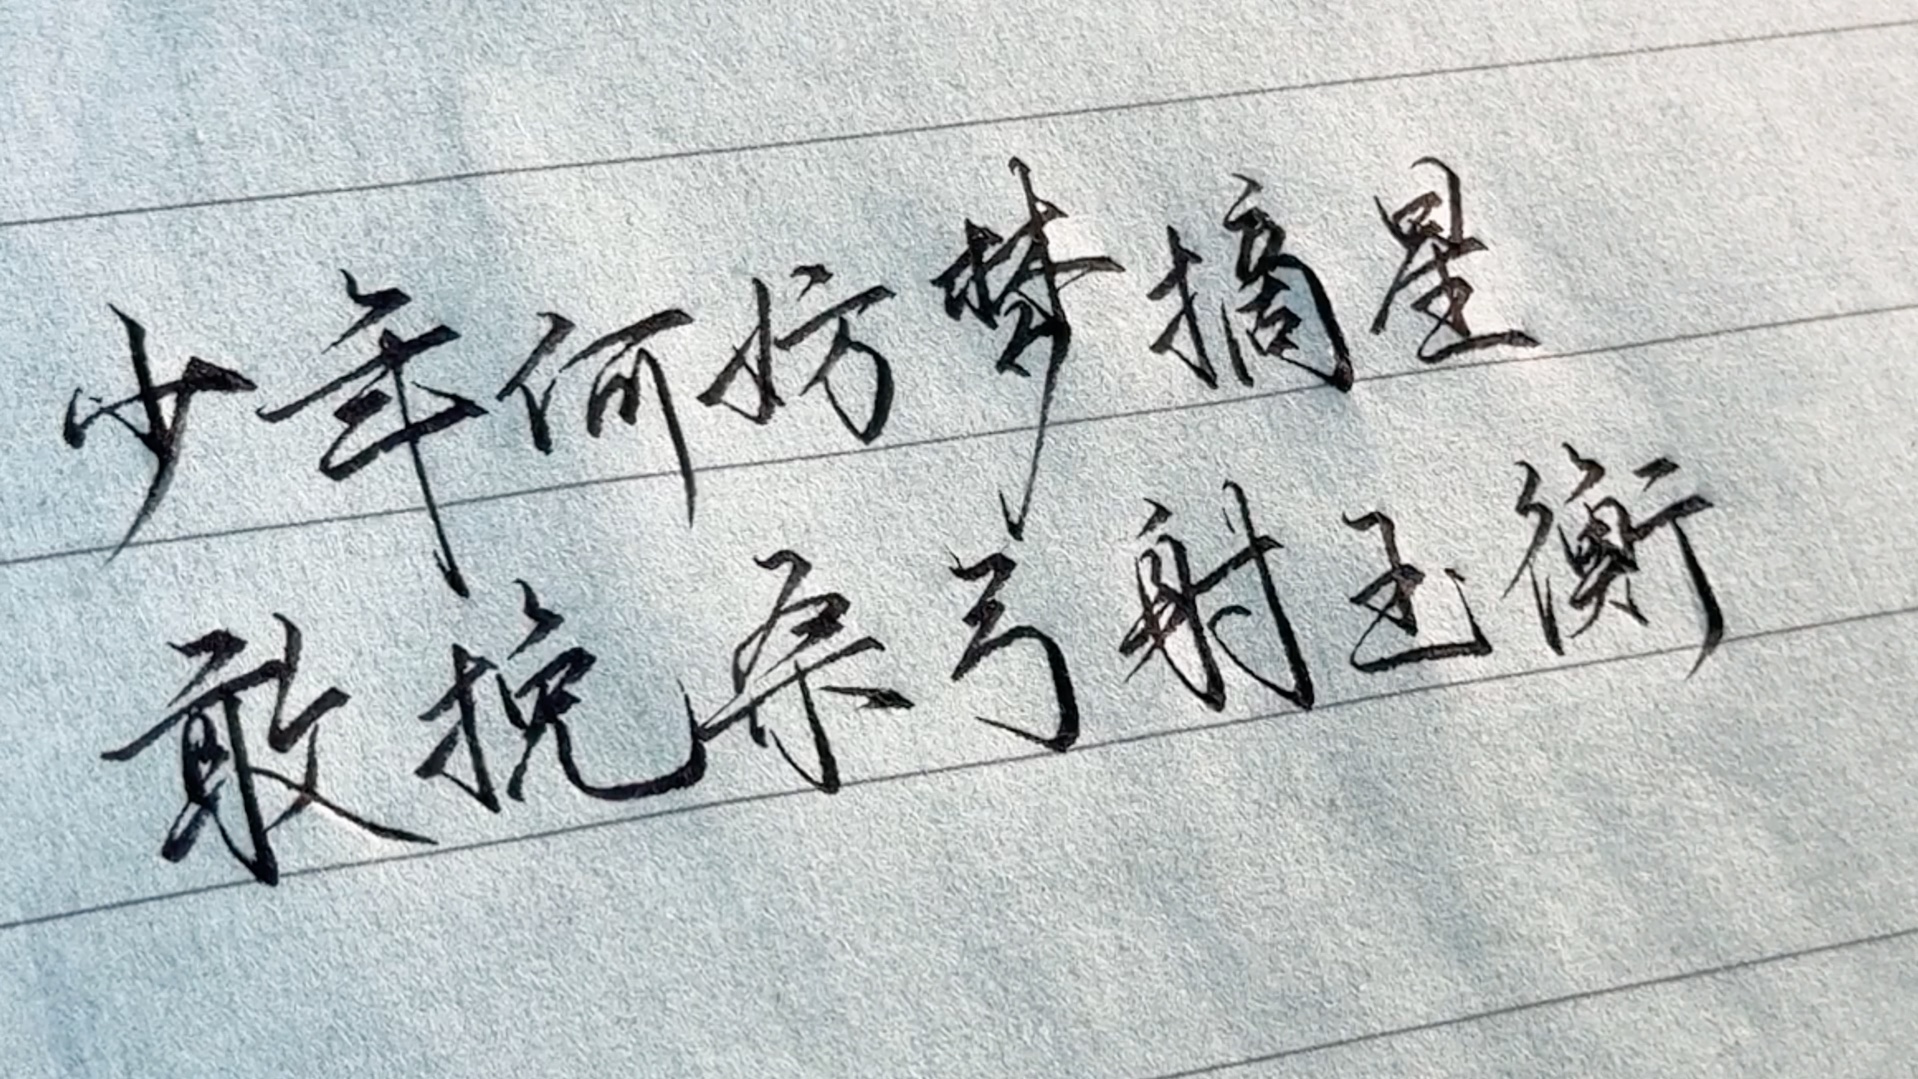 少年何妨梦摘星
敢挽桑弓射玉衡